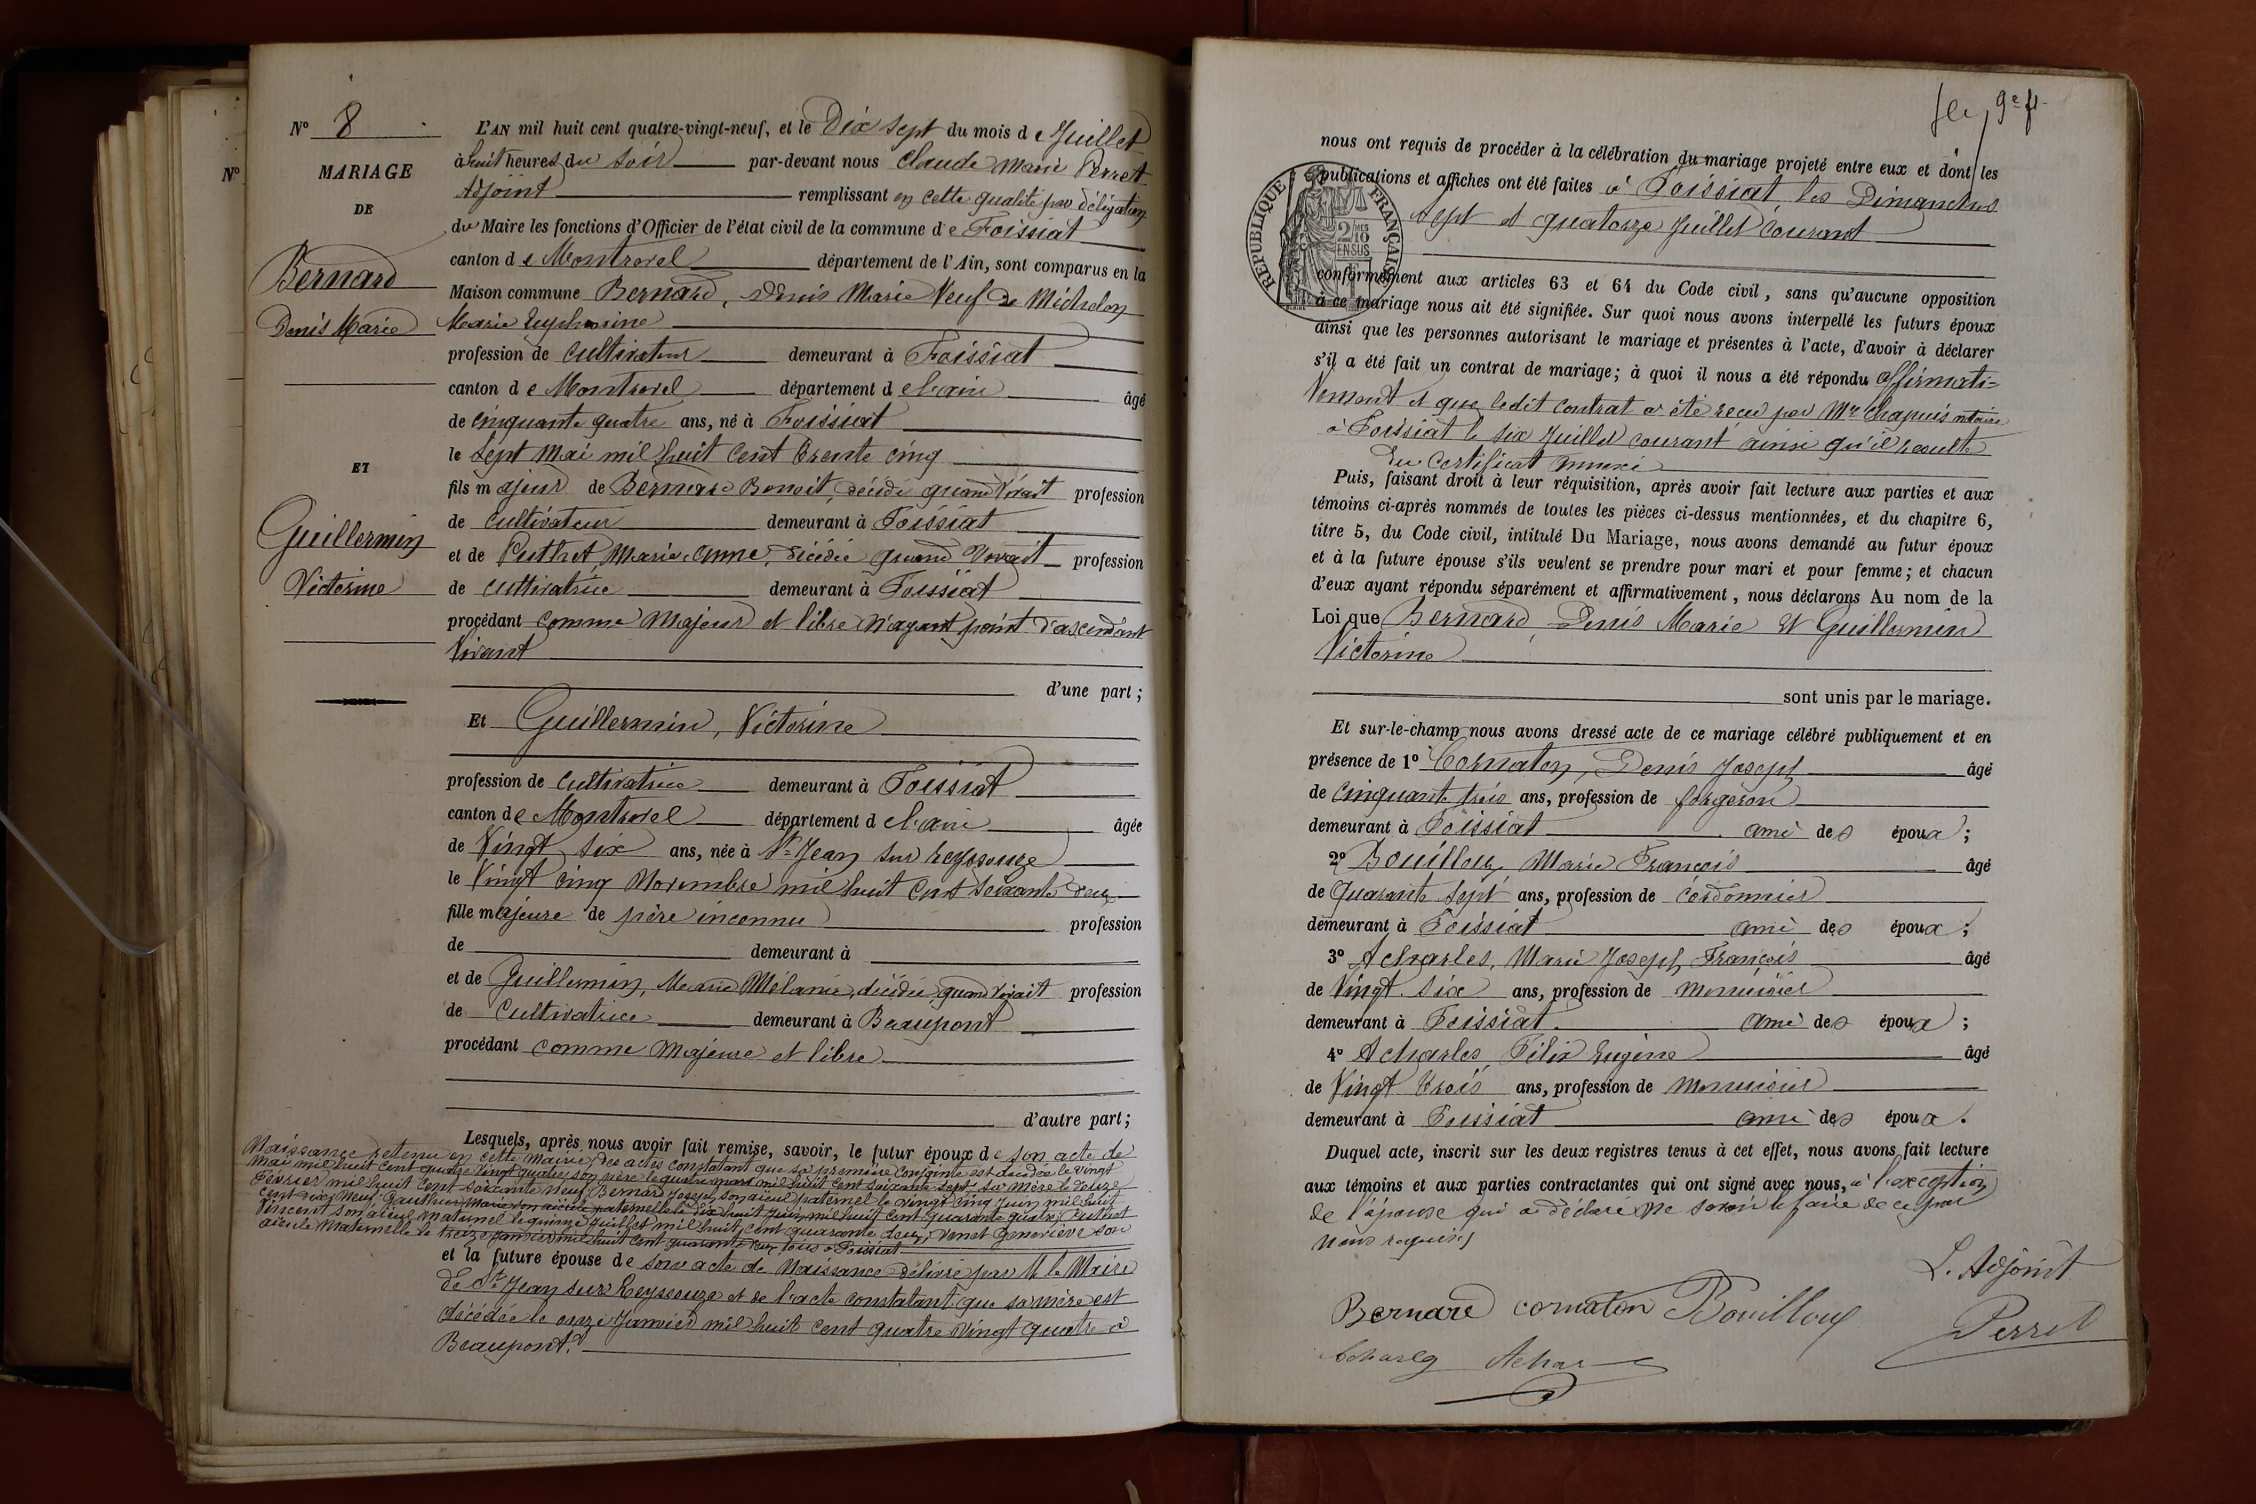 N° 8
N°
MARIAGE
DE
Bernard
Denis Marie
ET
Guillermin
Victorine
L'AN mil huit cent quatre-vingt-neuf, et le Dix sept du mois de Juillet
à huit heures du soir par-devant nous Claude Marie Perret
Adjoint remplissant en cette qualité par délégation
du Maire les fonctions d'Officier de l'état civil de la commune de Foissiat
canton de Montrevel département de l'Ain, sont comparus en la
Maison commune Bernard, Denis Marie Veuf de Michelon
Marie Euphrosine
profession de cultivateur demeurant à Foissiat
canton de Montrevel département de l'ain âgé
de cinquante quatre ans, né à Foissiat
le sept Mai mil huit cent trente cinq
fils majeur de Bernard Benoit, décédé quand vivait profession
de cultivateur demeurant à Foissiat
et de Puthet Marie Anne, décédée quand vivait profession
de cultivatrice demeurant à Foissiat
procédant comme Majeur et libre n'ayant point d'ascendant
Vivant
d'une part ;
Et Guillermin, Victorine
profession de cultivatrice demeurant à Foissiat
canton de Montrevel département de l'ain âgée
de Vingt six ans, née à St Jean sur Reyssouze
le Vingt cinq Novembre mil huit cent soixante deux
fille majeure de père inconnu profession
de demeurant à
et de Guillermin, Marie Mélanie, décédée, quand vivait profession
de Cultivatrice demeurant à Beaupont
procédant comme Majeure et libre
d'autre part ;
Lesquels, après nous avoir fait remise, savoir, le futur époux de son acte de
Naissance retenu en cette Mairie, des actes constatant que sa première conjointe est décédée le vingt
Mai mil huit cent quatre vingt quatre, son père le quatre mars mil huit cent soixante sept, sa Mère le douze
Février mil huit cent soixante Neuf, Bernard Joseph, son aïeul paternel le vingt cinq Juin mil huit
cent dix Neuf, Marie son aïeule paternelle le dix huit Juin mil huit cent quarante quatre, Puthet
Vincent son aïeul Maternel le quinze Juillet mil huit cent quarante deux, Venet Geneviève son
aïeule Maternelle le treize janvier mil huit cent quarante tous à Foissiat
et la future épouse de son acte de Naissance délivré par M le Maire
de St Jean sur Reyssouze et de l'acte constatant que sa mère est
décédée le onze Janvier mil huit cent quatre vingt quatre à
Beaupont.
9e f
nous ont requis de procéder à la célébration du mariage projeté entre eux et dont les
publications et affiches ont été faites à Foissiat les Dimanches
sept et quatorze Juillet courant
RÉPUBLIQUE FRANÇAISE
2/10 EN SUS
conformément aux articles 63 et 64 du Code civil, sans qu'aucune opposition
à ce mariage nous ait été signifiée. Sur quoi nous avons interpellé les futurs époux
ainsi que les personnes autorisant le mariage et présentes à l'acte, d'avoir à déclarer
s'il a été fait un contrat de mariage; à quoi il nous a été répondu affirmati=
vement et que ledit contrat a été recu par Me Chapuis notaire
à Foissiat le six Juillet courant ainsi qu'il resulte
du certificat annexé
Puis, faisant droit à leur réquisition, après avoir fait lecture aux parties et aux
témoins ci-après nommés de toutes les pièces ci-dessus mentionnées, et du chapitre 6,
titre 5, du Code civil, intitulé Du Mariage, nous avons demandé au futur époux
et à la future épouse s'ils veulent se prendre pour mari et pour femme; et chacun
d'eux ayant répondu séparément et affirmativement, nous déclarons Au nom de la
Loi que Bernard Denis Marie et Guillermin
Victorine
sont unis par le mariage.
Et sur-le-champ nous avons dressé acte de ce mariage célébré publiquement et en
présence de 1° Cornaton, Denis Joseph âgé
de cinquante trois ans, profession de forgeron
demeurant à Foissiat ami des époux ;
2° Bouilloux Marie François âgé
de quarante sept ans, profession de cordonnier
demeurant à Foissiat ami des époux ;
3° Acharles, Marie Joseph François âgé
de Vingt six ans, profession de menuisier
demeurant à Foissiat ami des époux ;
4° Acharles Félix Eugène âgé
de Vingt trois ans, profession de menuisier
demeurant à Foissiat ami des époux.
Duquel acte, inscrit sur les deux registres tenus à cet effet, nous avons fait lecture
aux témoins et aux parties contractantes qui ont signé avec nous, à l'exception
de l'épouse qui a déclaré ne savoir le faire de ce par
nous requis
L. Adjoint
Bernard cornaton Bouilloux Perret